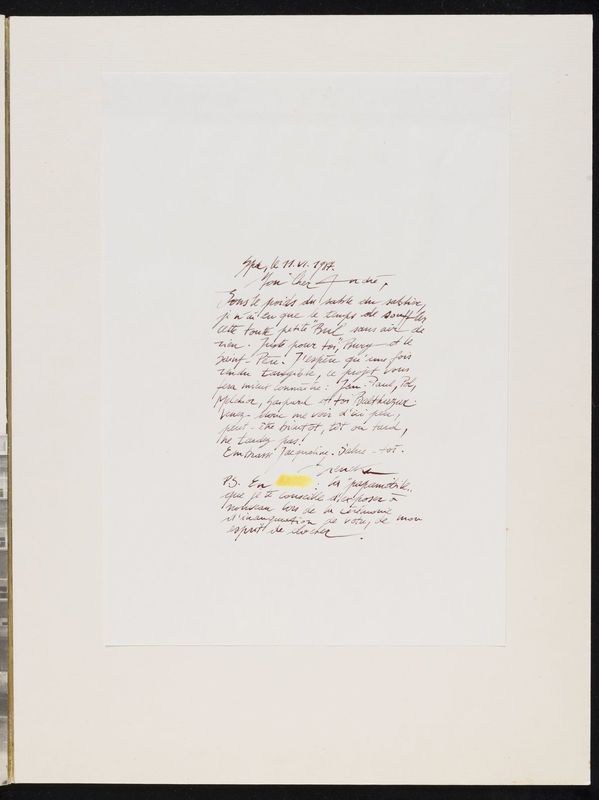 Spa, le 11.VI.1987.
Mon Cher André,
Sous le poids du sable du sablier,
je n'ai eu que le temps de
cette toute petite "Bul sans air de
rien. Juste pour toi", Bury et le
Saint Père. J'espère qu'une fois
rendu tangible, ce projet vous
fera mieux connaître: Jean-Paul, Pol,
Melchior, Gaspard et toi Balthazar.
Venez-donc me voir d'ici peu,
peut-être bientôt, tôt ou tard,
ne tardez pas!
Embrasse Jacqueline. Salue-toi.
PS. En : la "papamobile"
que je te conseille d'exposer à
nouveau lors de la cérémonie
d'inauguration de votre, de mon
esprit de clocher.